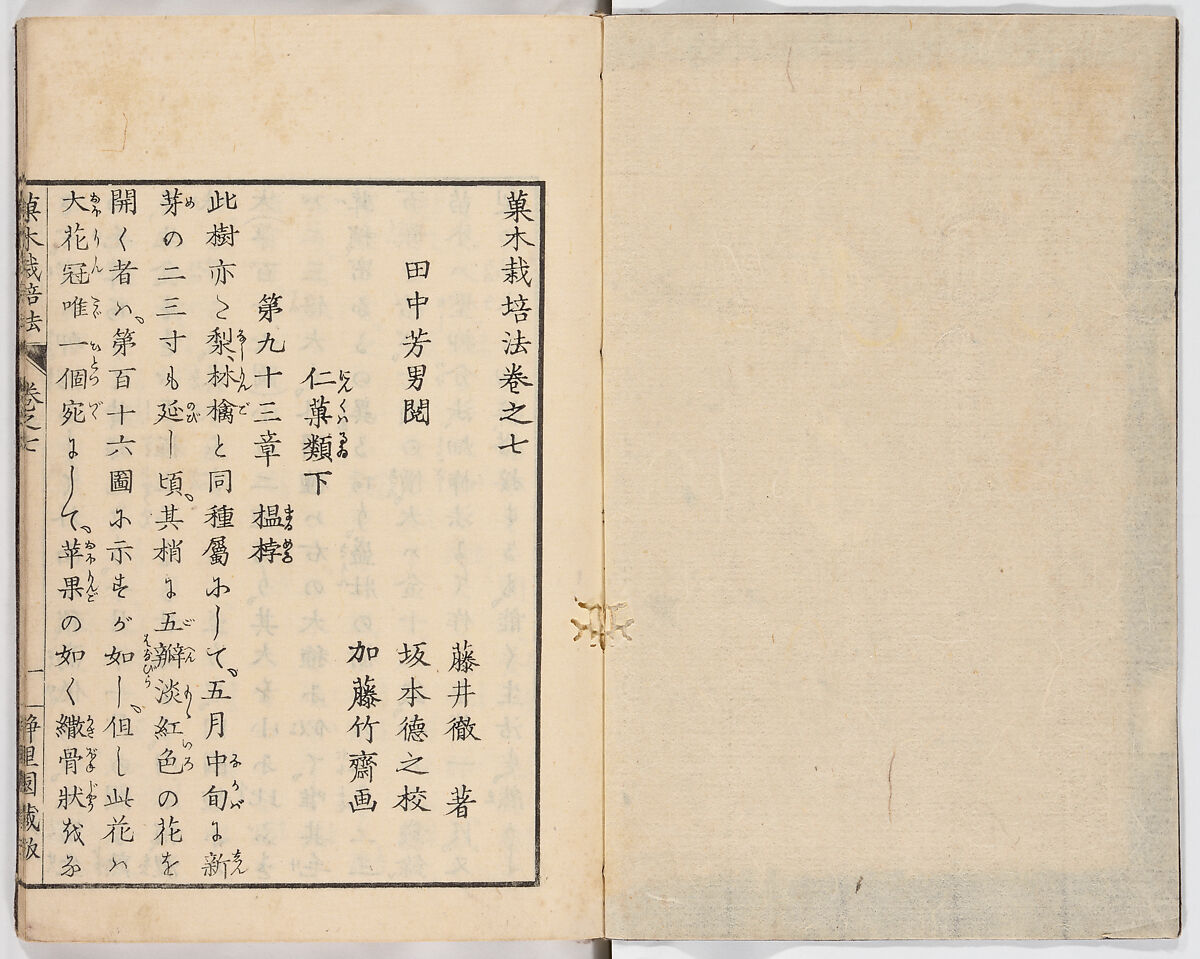 菓木栽培法卷之七
藤井徹 著
田中芳男閲 坂本德之校
加藤竹齋画
仁菓類下
第九十三章 榲桲
此樹亦た梨、林檎と同種屬にして、五月中旬に新
芽の二三寸も延し頃、其梢に五瓣淡紅色の花を
開く者ハ、第百十六圖に示すが如し、但し此花ハ
大花冠唯一個宛にして、苹果の如く繖骨狀をな
菓木栽培法 卷之七 一 静里園蔵版